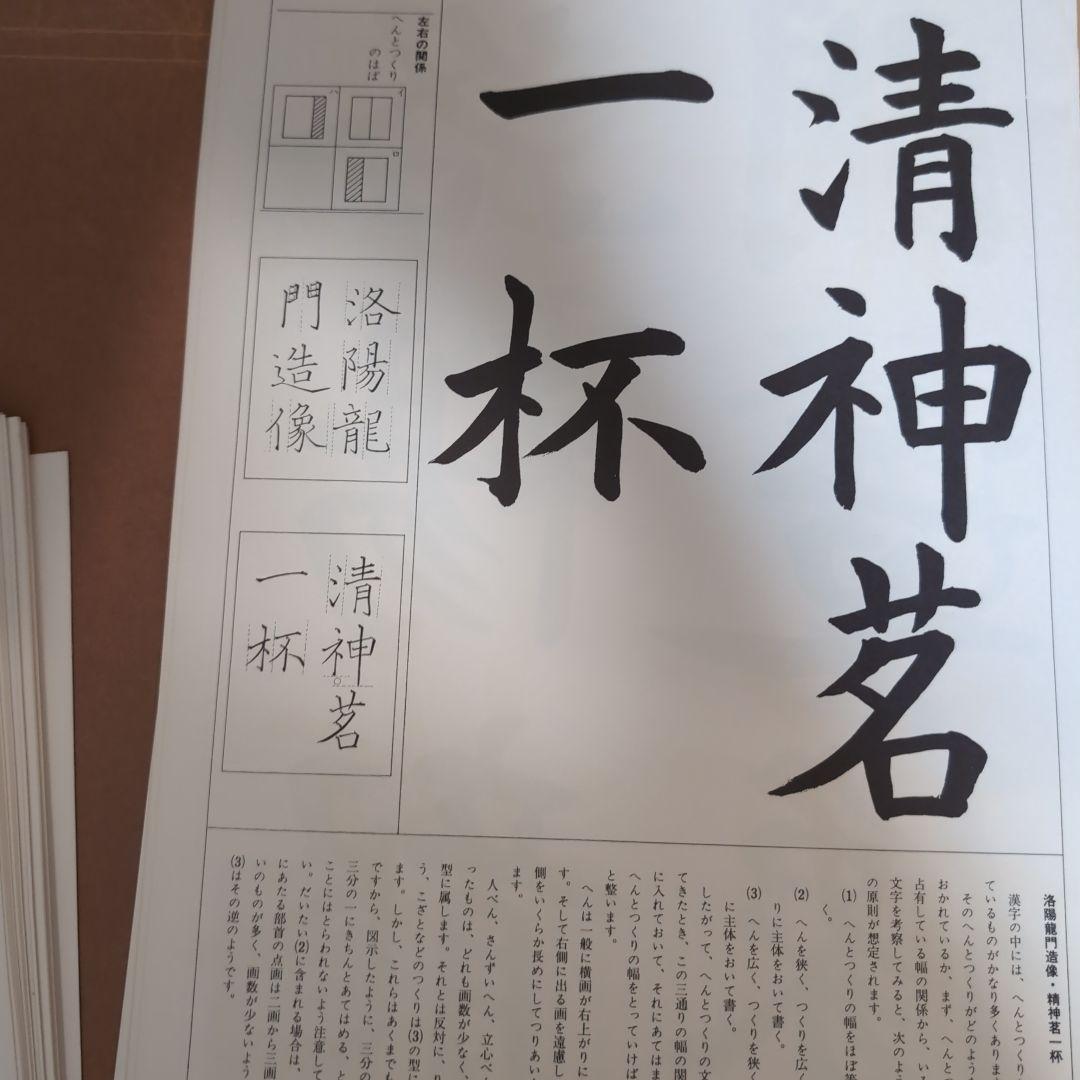 清神茗
一杯
左右の関係
へんとつくり
のはば
イ
ロ
ハ
洛陽龍
門造像
清神茗
一杯
洛陽龍門造像・精神茗一杯
漢字の中には、へんとつくり
ているものがかなり多くありま
そのへんとつくりがどのよう
おかれているか、まず、へんと
占有している幅の関係から、い
文字を考察してみると、次のよ
の原則が想定されます。
(1) へんとつくりの幅をほぼ等
く。
(2) へんを狭く、つくりを広く
りに主体をおいて書く。
(3) へんを広く、つくりを狭く
に主体をおいて書く。
したがって、へんとつくりの文
てきたとき、この三通りの幅の関
に入れておいて、それにあてはま
へんとつくりの幅をとっていけば
と整います。
へんは一般に横画が右上がりに
す。そして右側に出る画を遠慮し
側をいくらか長めにしてつりあい
ます。
人べん、さんずいへん、立心べ
ったものは、どれも画数が少なく、
型に属します。それとは反対に、り
う、こざとなどのつくりは(3)の型に
ます。しかし、これらはあくまでも
ですから、図示したように、三分の
三分の一にきちんとあてはめる、と
ことにはとらわれないよう注意して
い。だいたい(2)に含まれる場合は、
にあたる部首の点画は二画から三画
いのものが多く、画数が少ないよう
(3)はその逆のようです。